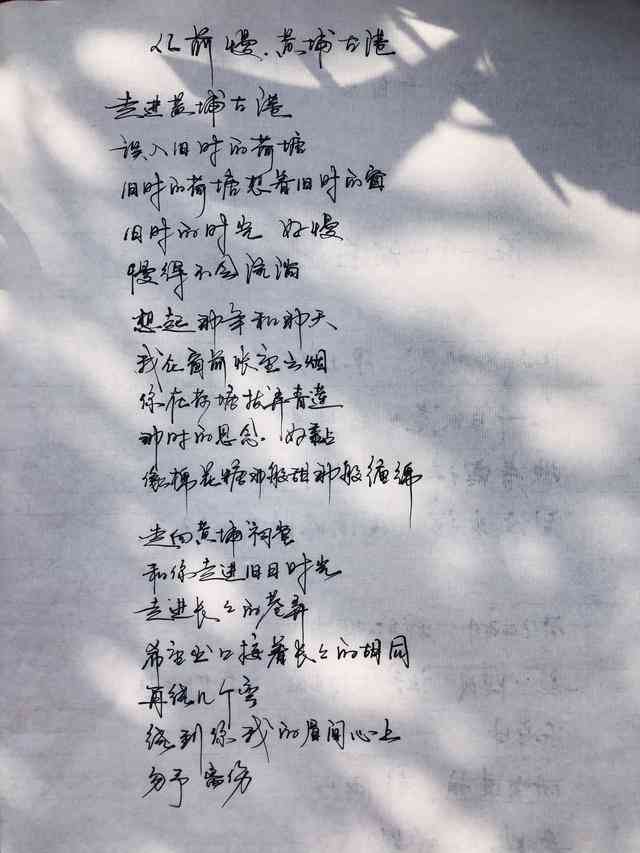 从前慢.黄埔古港
走进黄埔古港
误入旧时的荷塘
旧时的荷塘想着旧时的窗
旧时的时光 好慢
慢得不会流淌
想起那年和那天
我在窗前收云烟
你在荷塘拔弄青莲
那时的思念.好黏
像棉花糖那般甜那般缠绵
走向黄埔祠堂
和你走进旧日时光
走进长长的巷弄
希望出口接着长长的胡同
再绕几个弯
绕到你我的眉间心上
勿予